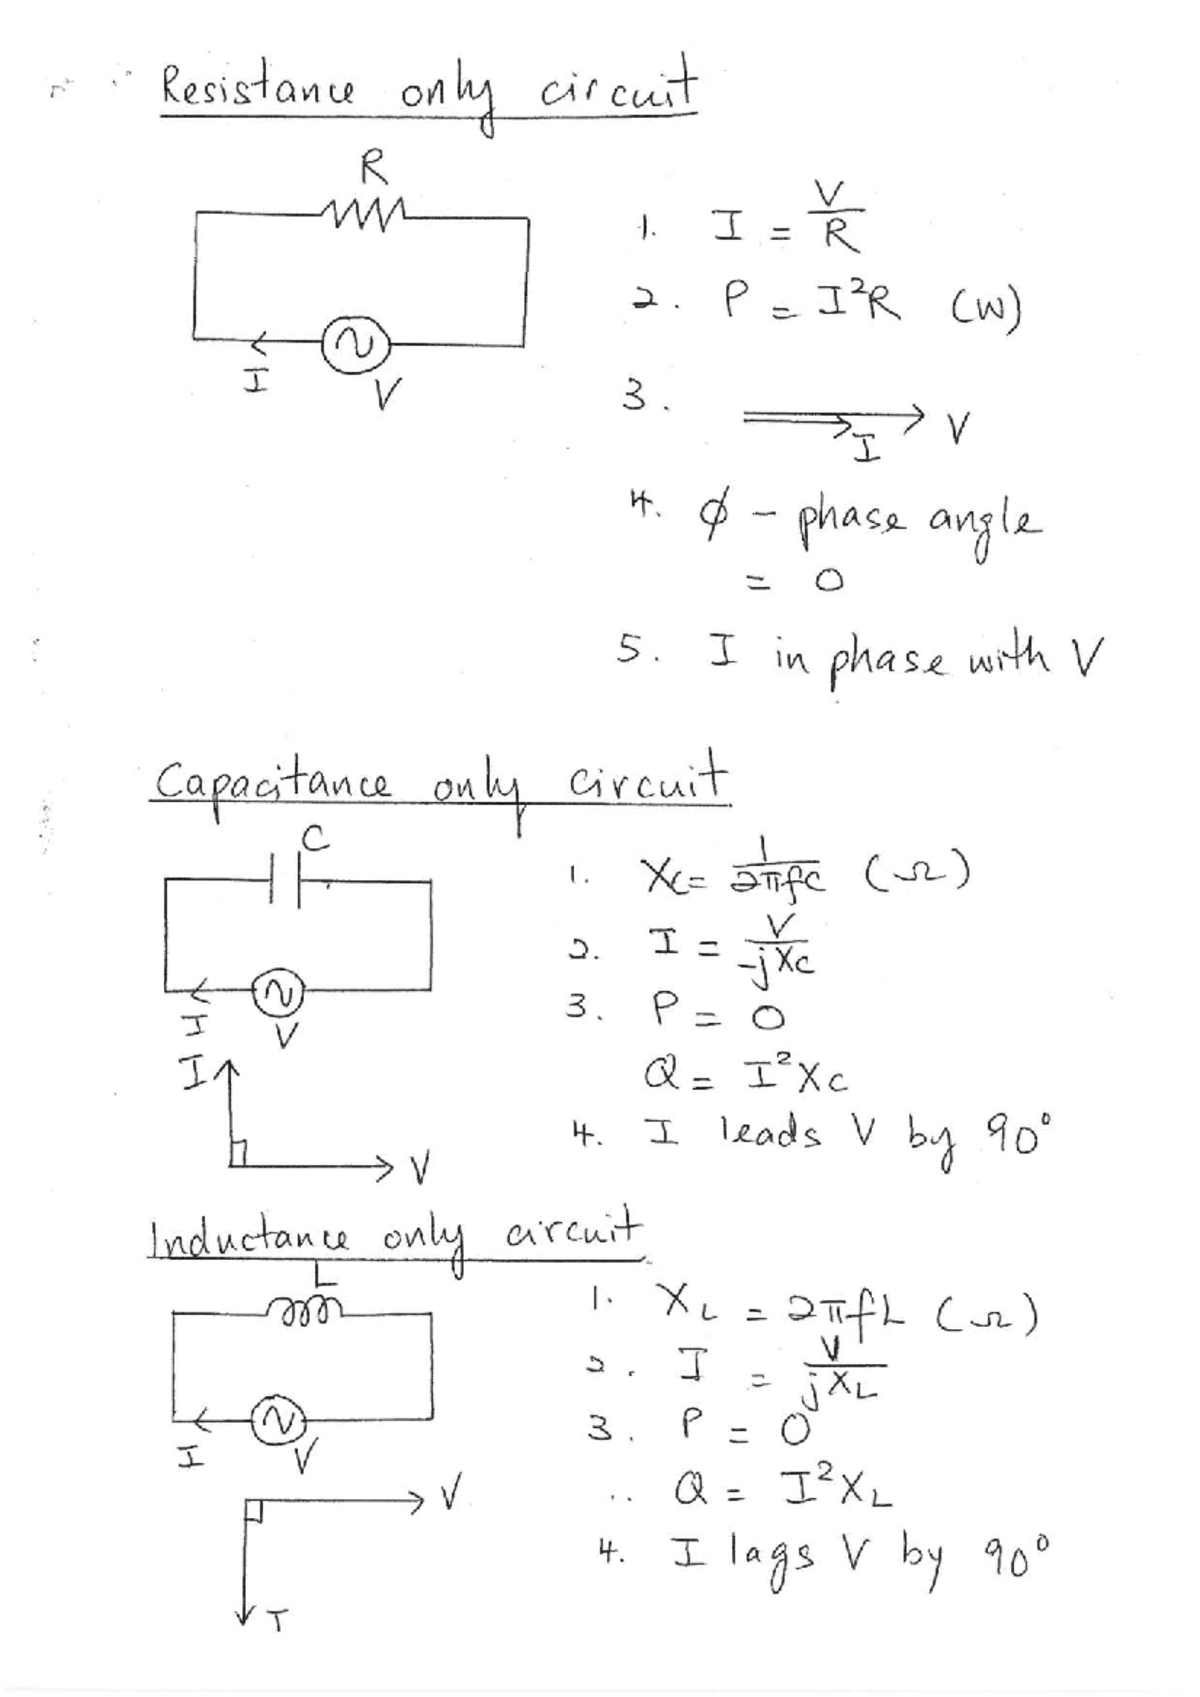 Resistance only circuit
R
I
V
1. I = V/R
2. P = I²R (W)
3.
V
I
4. φ - phase angle
= 0
5. I in phase with V
Capacitance only circuit
C
I
V
I
V
1. Xc = 1/2πfC (Ω)
2. I = V/-jXc
3. P = 0
Q = I²Xc
4. I leads V by 90°
Inductance only circuit
L
I
V
V
I
1. XL = 2πfL (Ω)
2. I = V/jXL
3. P = 0
.. Q = I²XL
4. I lags V by 90°